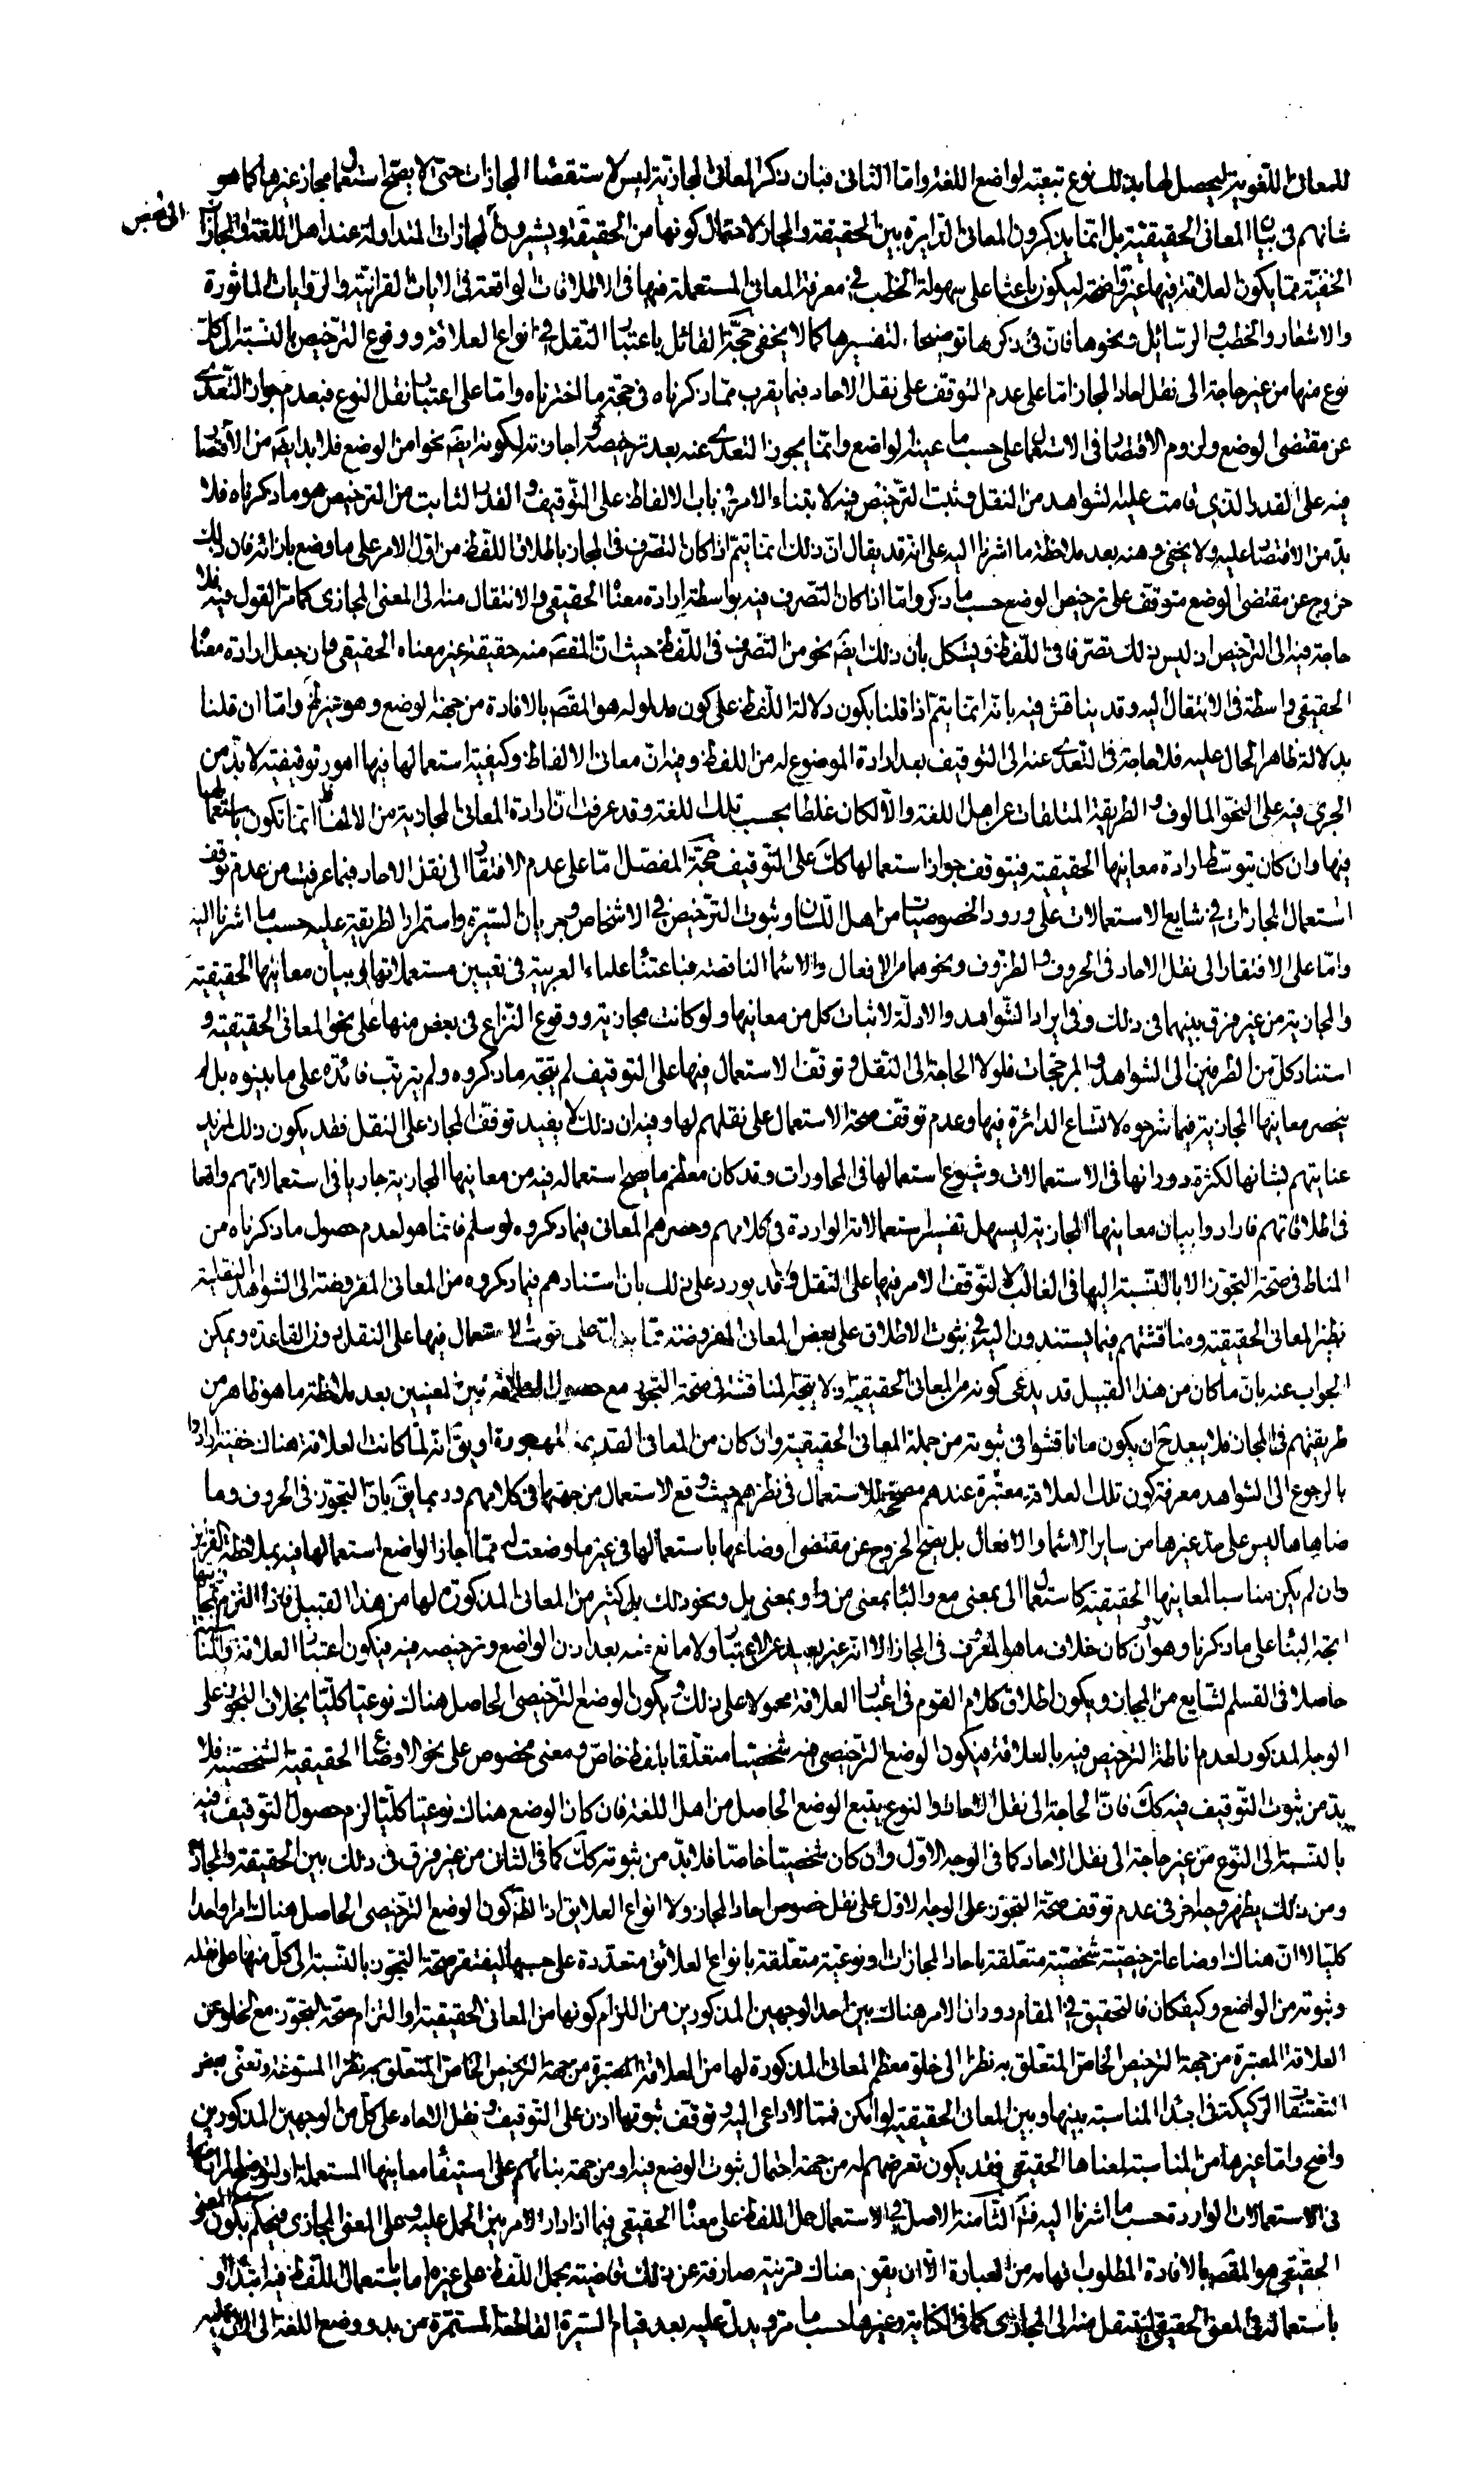 للمعانى اللغوية ليحصل لها بذلك نوع تبعية لواضع اللغة واما الثانى فبان ذكر المعانى المجازية ليس لاستقصاء المجازات حتى لا يصح استعمال مجاز غيرها كما هو
شانهم فى بيان المعانى الحقيقية بل انما يذكرون المعانى الدايرة بين الحقيقة والمجاز لاحتمال كونها من الحقيقة ويشيرون الى المجازات المتداولة عند اهل اللغة او المجازات
الخفية مما يكون العلاقة فيها غير واضحة ليكون باعثا على سهولة الخطب فى معرفة المعانى المستعملة فيها فى الاطلاقات الواقعة فى الايات القرانية والروايات الماثورة
والاشعار والخطب والرسائل ونحوها فان فى ذكرها توضيحا لتفسيرها كما لا يخفى حجة القائل باعتبار النقل فى انواع العلاقة ووقوع الترخيص بالنسبة الى كل
نوع منها من غير حاجة الى نقل احاد المجاز اما على عدم التوقف على نقل الاحاد فبما يقرب مما ذكرناه فى حجة ما اخترناه واما على اعتبار نقل النوع فبعدم جواز التعدى
عن مقتضى الوضع ولزوم الاقتصار فى الاستعمال على حسب ما عينه الواضع وانما يجوز التعدى عنه بعد ترخيصه واجازته لكونه ايضا نحوا من الوضع فلا بد ايضا من الاقتصار
فيه على القدر الذى قامت عليه الشواهد من النقل وثبت الترخيص فيه لابتناء الامر فى باب الالفاظ على التوقيف والقدر الثابت من الترخيص هو ما ذكرناه فلا
بد من الاقتصار عليه ولا يخفى وهنه بعد ملاحظة ما اشرنا اليه على انه قد يقال ان ذلك انما يتم اذا كان التصرف فى المجاز باطلاق اللفظ من اول الامر على ما وضع بازائه فان ذلك
خروج عن مقتضى الوضع متوقف على ترخيص الواضع حسب ما ذكر واما اذا كان التصرف فيه بواسطة ارادة معناه الحقيقى والانتقال منه الى المعنى المجازى كما مر القول فيه فلا
حاجة فيه الى الترخيص اذ ليس ذلك تصرفا فى اللفظ ويشكل بان ذلك ايضا نحو من التصرف فى اللفظ حيث ان المقصود منه حقيقة غير معناه الحقيقى فان جعل ارادة معناه
الحقيقى واسطة فى الانتقال اليه وقد يناقش فيه بانه انما يتم اذا قلنا بكون دلالة اللفظ على كون مدلوله هو المقصود بالافادة من جهة الوضع وهو غير واما ان قلنا
بدلالة ظاهر الحال عليه فلا حاجة فى التعدى عنه الى التوقيف بعد ارادة الموضوع له من اللفظ وفيه ان معانى الالفاظ وكيفية استعمالها فيها امور توقيفية لا بد من
الجرى فيه على النحو المالوف والطريقة المتلقات عن اهل اللغة والا لكان غلطا بحسب تلك اللغة وقد عرفت ان ارادة المعانى المجازية من الالفاظ انما تكون باستعمالها
فيها وان كان بتوسط ارادة معانيها الحقيقية فيتوقف جواز استعمالها كك على التوقيف حجة المفصل اما على عدم الافتقار الى نقل الاحاد فبما عرفت من عدم توقف
استعمال المجازات فى شايع الاستعمالات على ورود الخصوصيات من اهل اللسان وثبوت الترخيص فى الاشخاص وجريان السيرة واستمرار الطريقة عليه حسب ما اشرنا اليه
واما على الافتقار الى نقل الاحاد فى الحروف والظروف ونحوهما من الافعال والاسماء الناقصة فباعتناء علماء العربية فى تعيين مستعملاتها وبيان معانيها الحقيقية
والمجازية من غير فرق بينهما فى ذلك وفى ايراد الشواهد والادلة لاثبات كل من معانيها ولو كانت مجازية ووقوع النزاع فى بعض منها على نحو المعانى الحقيقية و
استناد كل من الطرفين الى الشواهد والمرجحات فلو لا الحاجة الى النقل وتوقف الاستعمال فيها على التوقيف لم يتجه ما ذكروه ولم يترتب فائدة على ما بينوه بل لم
ينحصر معانيها المجازية فيما شرحوه لاتساع الدائرة فيها وعدم توقف صحة الاستعمال على نقلهم لها وفيه ان ذلك لا يفيد توقف المجاز على النقل فقد يكون ذلك لمزيد
عنايتهم بشانها لكثرة دورانها فى الاستعمالات وشيوع استعمالها فى المحاورات وقد كان معظم ما يصح استعماله فيه من معانيها المجازية جاريا فى استعمالاتهم واقعا
فى اطلاقاتهم فارادوا بيان معانيها المجازية ليسهل تفسير استعمالاته الواردة فى كلامهم وحصرهم المعانى فيما ذكروه لو سلم فانما هو لعدم حصول ما ذكرناه من
المناط فى صحة التجوز الا بالنسبة اليها فى الغالب لا لتوقف الامر فيها على النقل وقد يورد على ذلك بان استنادهم فيما ذكروه من المعانى المفروضة الى الشواهد النقلية
نظير المعانى الحقيقية ومناقشتهم فيما يستندون اليه فى ثبوت الاطلاق على بعض المعانى المفروضة مما يدل على توقف الاستعمال فيها على النقل دون القاعدة ويمكن
الجواب عنه بان ما كان من هذا القبيل قد يدعى كونه من المعانى الحقيقية اذ لا يتجه المناقشة فى صحة التجوز مع حصول العلاقة بين المعنيين بعد ملاحظة ما هو ظاهر من
طريقتهم فى المجاز فلا يبعد ح ان يكون ما ناقشوا فى ثبوته من جملة المعانى الحقيقية وان كان من المعانى القديمة المهجورة او يق انه لما كانت العلاقة هناك خفية ارادوا
بالرجوع الى الشواهد معرفة كون تلك العلاقة معتبرة عندهم مصححة للاستعمال فى نظرهم حيث وقع الاستعمال من جهتها فى كلامهم وربما يق بان التجوز فى الحروف وما
ضاهاها ليس على حد غيرها من ساير الاسماء والافعال بل يصح الخروج عن مقتضى اوضاعها باستعمالها فى غير ما وضعت له مما اجاز الواضع استعمالها فيه بملاحظة القرينة
وان لم يكن مناسبا لمعانيها الحقيقية كاستعمال الى بمعنى مع والباء بمعنى من واو بمعنى بل ونحو ذلك بل كثير من المعانى المذكورة لها من هذا القبيل فاذا التزم تجازيتها
اتجه البناء على ما ذكرنا وهو وان كان خلاف ما هو المعرف فى المجاز الا انه غير بعيد عن الاعتبار ولا مانع منه بعد اذن الواضع وترخيصه فيه فيكون اعتبار العلاقة
حاصلا فى القسم الشايع من المجاز ويكون اطلاق كلام القوم فى اعتبار العلاقة محمولا على ذلك ويكون الوضع الترخيصى الحاصل هناك نوعيا كليا بخلاف التجوز على
الوجه المذكور لعدم اناطة الترخيص فيه بالعلاقة فيكون الوضع الترخيصى فيه شخصيا متعلقا بلفظ خاص ومعنى مخصوص على نحو الاوضاع الحقيقية الشخصية فلا
بد من ثبوت التوقيف فيه كك فان الحاجة الى نقل الاحاد والنوع يتبع الوضع الحاصل من اهل اللغة فان كان الوضع هناك نوعيا كليا لزم حصول التوقيف فيه
بالنسبة الى النوع من غير حاجة الى نقل الاحاد كما فى الوجه الاول وان كان شخصيا خاصا فلا بد من ثبوته كك كما فى الثانى من غير فرق فى ذلك بين الحقيقة والمجاز
ومن ذلك يظهر وجه اخر فى عدم توقف صحة التجوز على الوجه الاول على نقل خصوص احاد المجاز ولا انواع العلايق اذ الظ كون الوضع الترخيصى الحاصل هناك امرا واحدا
كليا لا ان هناك اوضاعا ترخيصية شخصية متعلقة باحاد المجازات او نوعية متعلقة بانواع العلائق متعددة على حسبها ليفتقر صحة التجوز بالنسبة الى كل منها على نقله
وثبوته من الواضع وكيف كان فالتحقيق فى المقام دوران الامر هناك بين احد الوجهين المذكورين من التزام كونها من المعانى الحقيقية او التزام صحة التجوز مع الخلو عن
العلاقة المعتبرة من جهة الترخيص الخاص المتعلق به نظرا الى خلو معظم المعانى المذكورة لها من العلاقة المعتبرة من جهة الترخيص الخاص المتعلق به نظرا
الركيكة فى ابداء المناسبة بينها وبين المعانى الحقيقية لو امكن فمما لا داعى اليه وتوقف ثبوتها اذن على التوقيف ونقل الاحاد على كل من الوجهين المذكورين
واضح واما غيرها من المناسبة لمعناها الحقيقى فقد يكون تعرضهم له من جهة احتمال ثبوت الوضع فيه او من جهة بنائهم على استيفاء معانيها المستعملة
فى الاستعمالات الواردة حسب ما اشرنا اليه فتم الثامنة الاصل فى الاستعمال حمل اللفظ على معناه الحقيقى فيما اذا دار الامر بين الحمل عليه وعلى المعنى المجازى فيحكم بكون المعنى
الحقيقى هو المقصود بالافادة المطلوب فهامه من العبارة الا ان يقوم هناك قرينة صارفة عن ذلك قاضية بحمل اللفظ على غيره اما باستعمال اللفظ فيه ابتداء او
باستعماله فى المعنى الحقيقى لينتقل منه الى المجازى كما فى الكناية وغيرها حسب ما مر ويدل عليه بعد قيام السيرة القاطعة المستمرة من بدو وضع اللغة الى الان